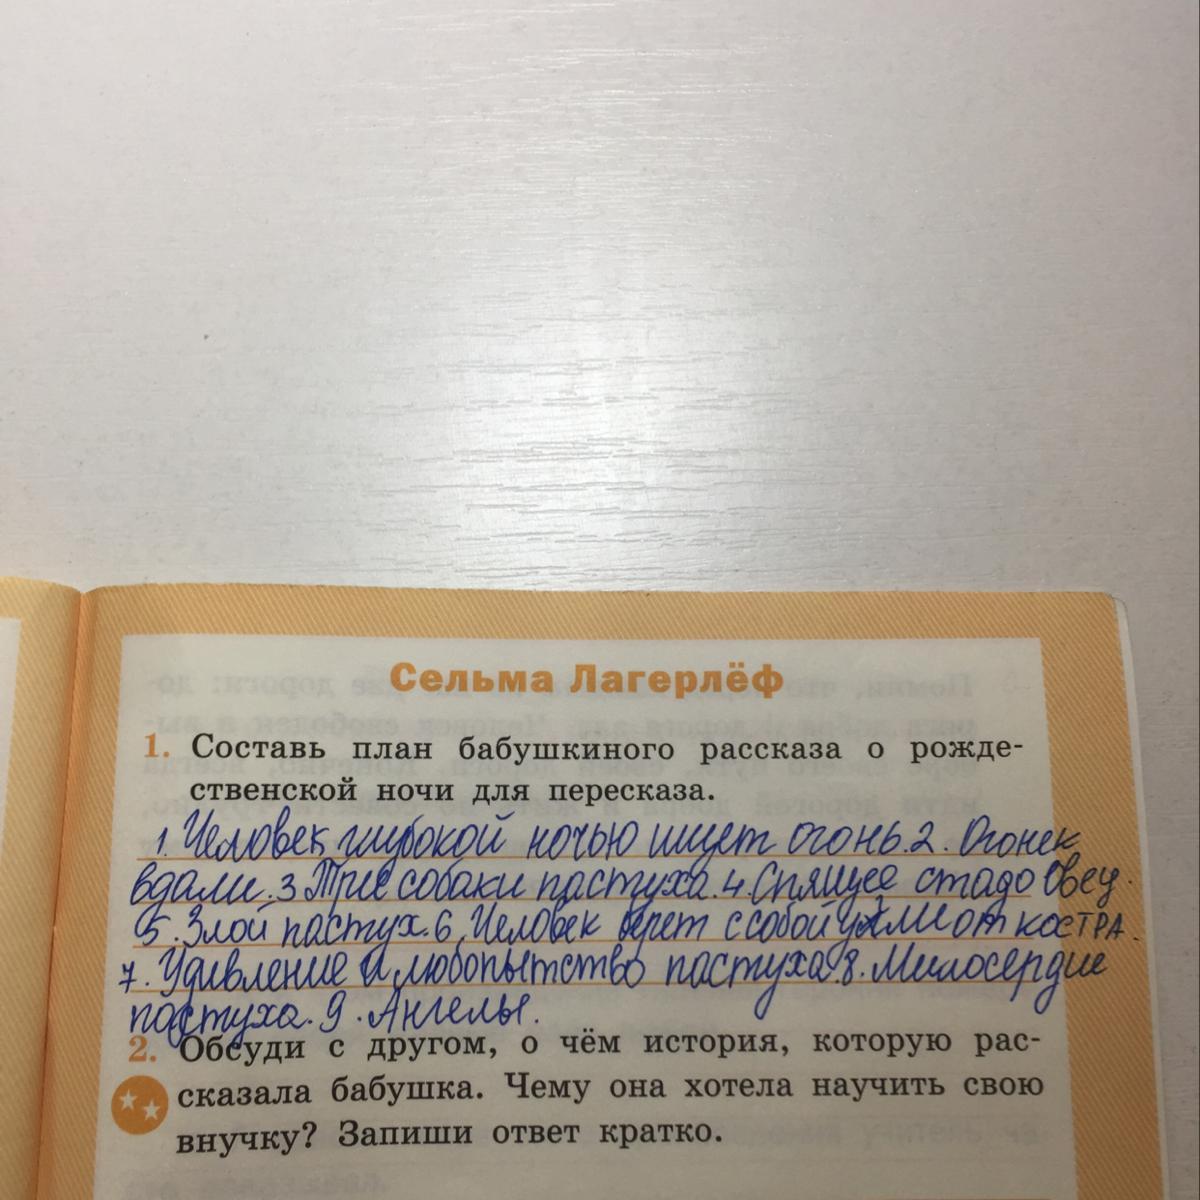 Сельма Лагерлёф
1. Составь план бабушкиного рассказа о рожде-
ственской ночи для пересказа.
1. Человек глубокой ночью ищет огонь. 2. Огонек
вдали. 3 Три собаки пастуха. 4. Спящее стадо овец.
5. Злой пастух. 6. Человек берет с собой угли от костра.
7. Удивление и любопытство пастуха. 8. Милосердие
пастуха. 9. Ангелы.
2. Обсуди с другом, о чём история, которую рас-
сказала бабушка. Чему она хотела научить свою
внучку? Запиши ответ кратко.